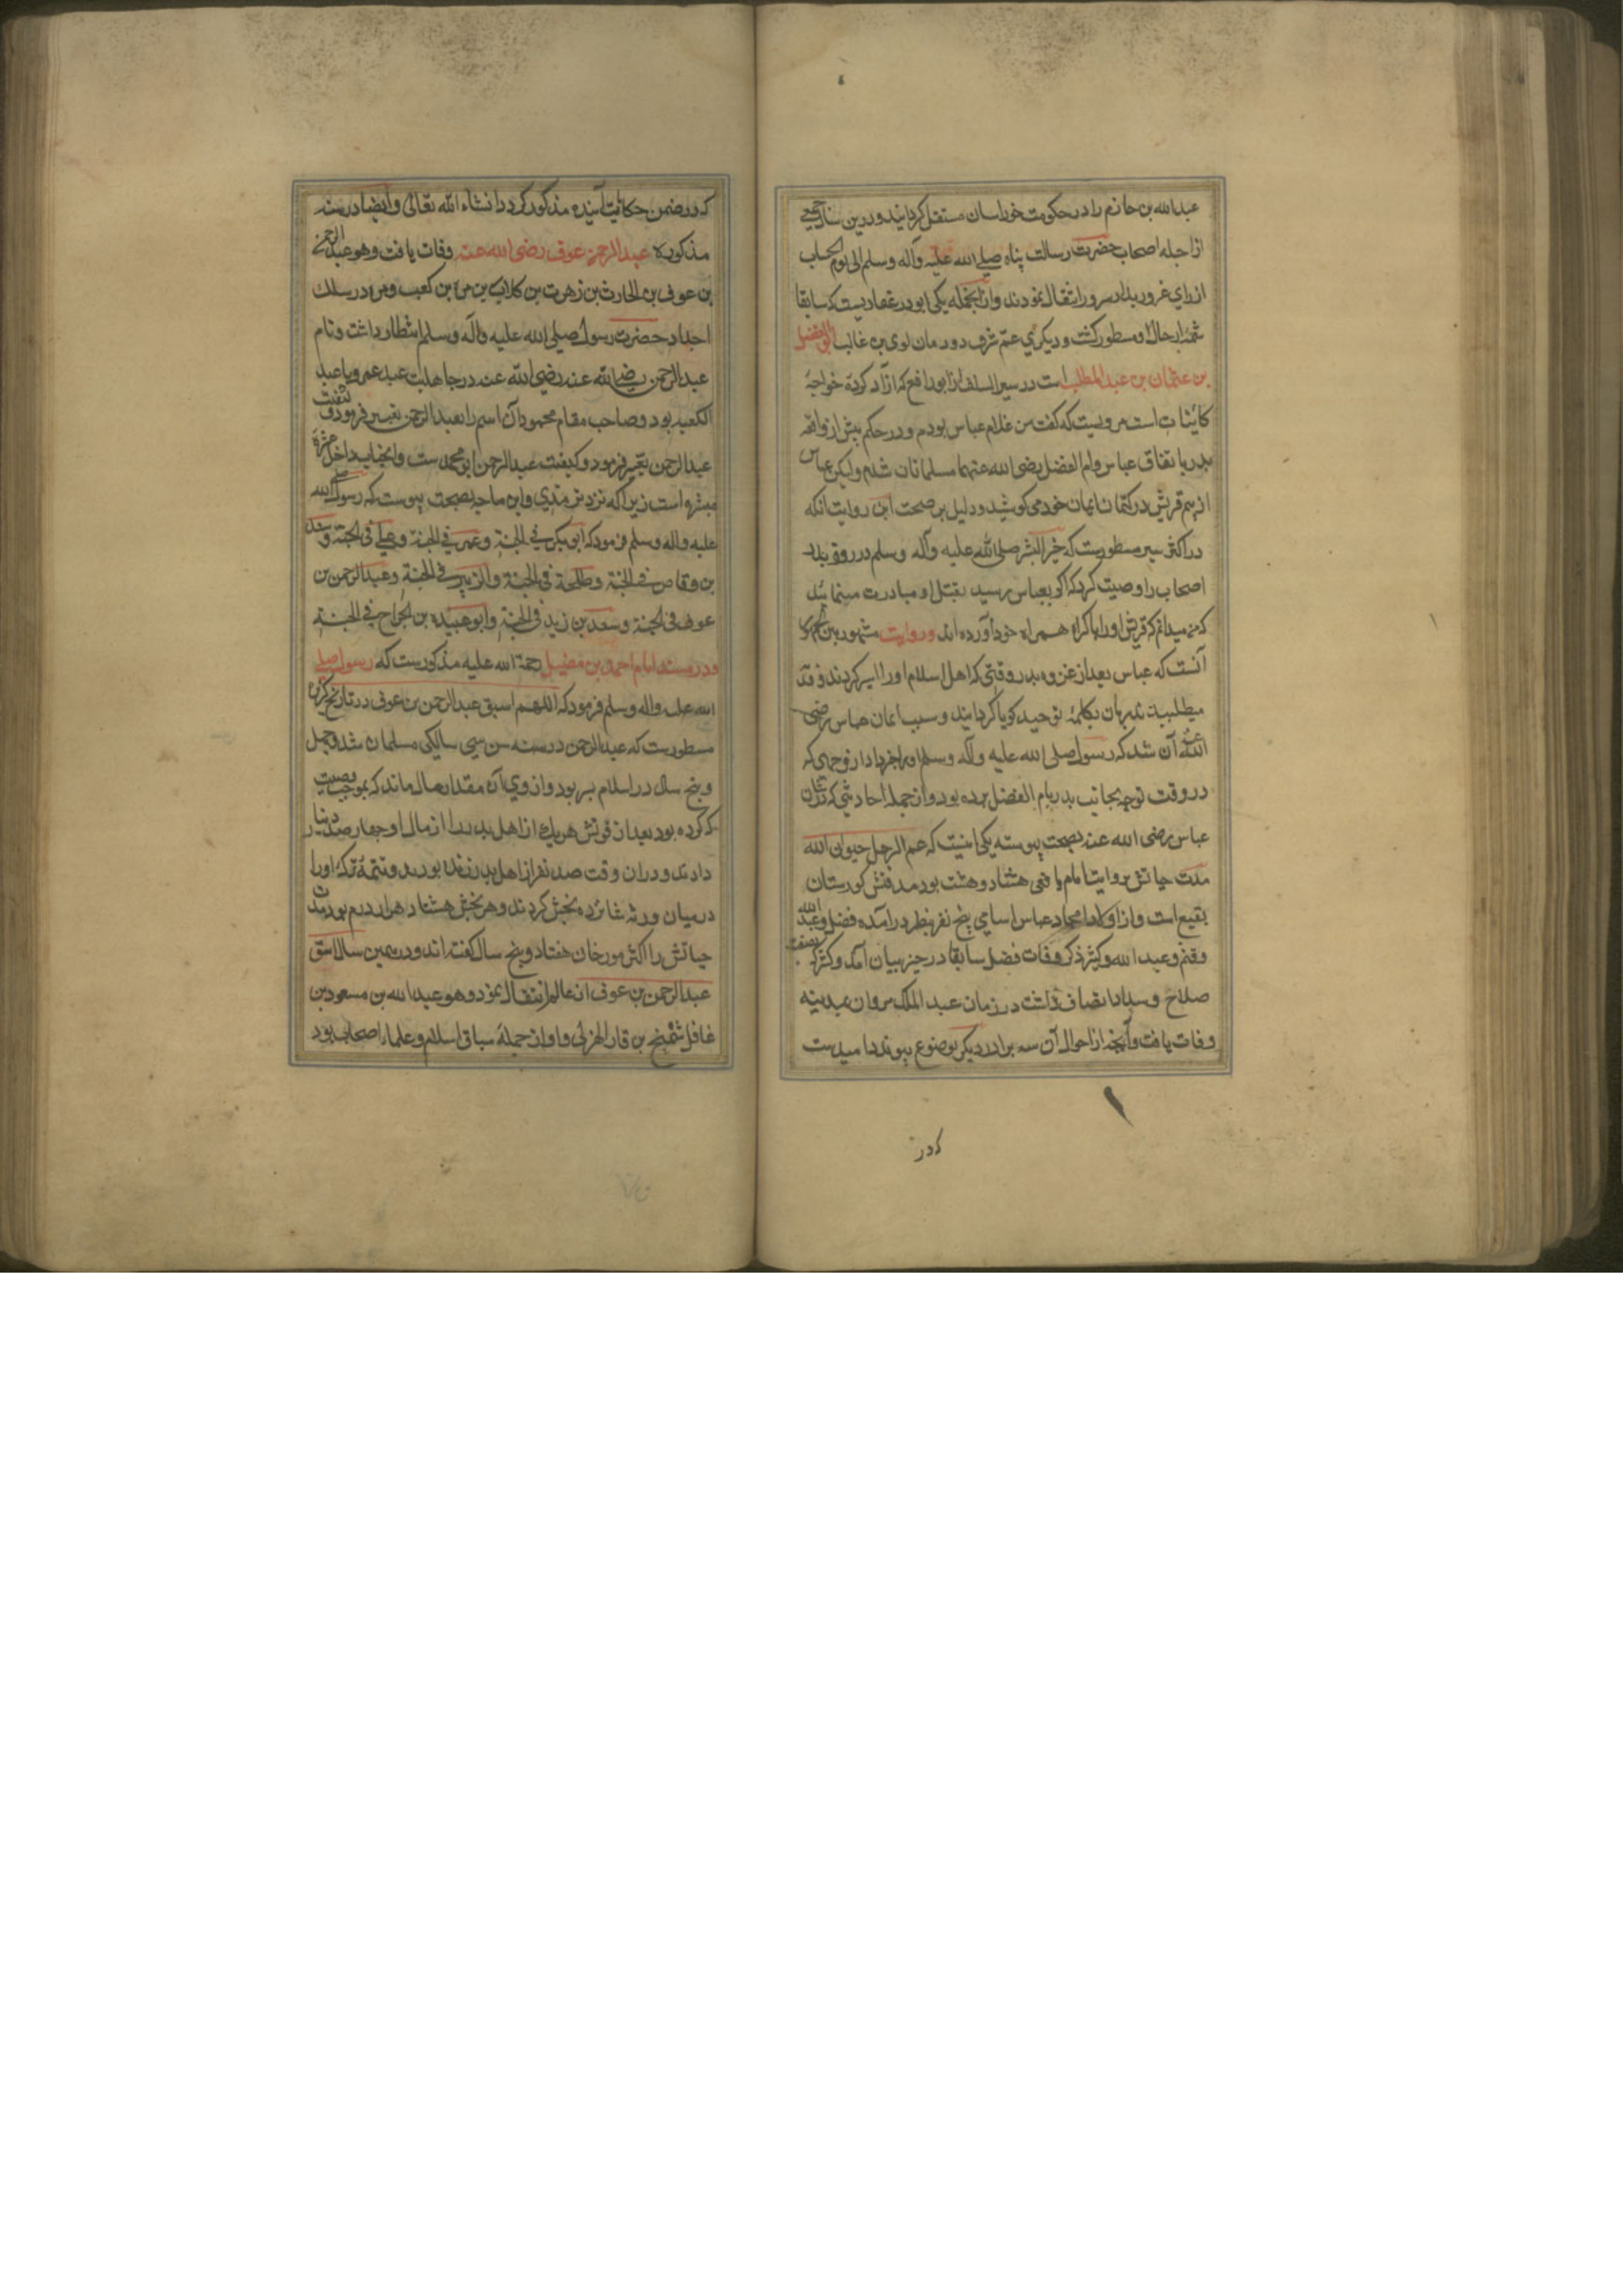 عبدالله بن حازم را در حکومت خراسان مستقل کردانیند و درین سنه جمعی
از اجله اصحاب حضرت رسالت پناه صلی الله علیه وآله وسلم الی یوم الحساب
از رای غرور بدار سرور انتقال نمودند وازانجمله یکی ابو درغفاریست که سابقا
شمۀ از حال او مسطور کشت و دیکری عم شرف دودمان لوی بن غالب ابو الفضل
بن عثمان بن عبد المطلب است در سیر السلف از ابو رافع که ازاد کردۀ خواجۀ
کائنات است مرویست که کفت من غلام عباس بودم و در حکم پیش از واقعه
بدر باتفاق عباس وام الفضل رضی الله عنهما مسلمانان شدم ولیکن عباس
از بیم قریش در کتمان ایمان خود می کوشید و دلیل بر صحت این روایت انکه
در اکثر سیر مسطورست که خیر البشر صلی الله علیه وآله وسلم در روز بدر
اصحاب را وصیت کرد که اکر بعباس رسید بقتل او مبادرت منمائید
که من میدانم که قریش او را باکراه همراه خود آورده اند و روایت مشهور بین الجمهور
آنست که عباس بعد از غزوه بدر وقتی که اهل اسلام او را اسیر کردند و فدیه
میطلبیدند زبان بکلمۀ توحید کویا کردانیند و سبب ایمان عباس رضی
الله عنه آن شد که رسول صلی الله علیه وآله وسلم او را خبر داد از وجهی که
در وقت توجه بجانب بدر بام الفضل سپرده بود و از جمله احادیثی که در شان
عباس رضی الله عنه بصحت پیوسته یکی اینست که عم الرجل صنو ابی الله
مدت حیاتش بروایت امام یافعی هشتاد و هشت بود مدفنش کورستان
بقیع است و از اولاد امجاد عباس اسامی پنج نفر بنظر درآمده فضل و عبد الله
وقثم و عبید الله و کثیر ذکر وفات فضل سابقا در حیز بیان آمد و کثیر که بصفت
صلاح و سداد اتصاف داشت در زمان عبد الملک مروان بمدینه
وفات یافت وآنچه از احوال آن سه برادر دیکر بوضوع پیوندد امیدست
که در
که در ضمن حکایت آینده مذکور کردد انشاء الله تعالی وایضا در سنه
مذکوره عبد الرحمن عوف رضی الله عنه وفات یافت وهو عبد الرحمن
بن عوف بن الحارث بن زهرت بن کلاب بن مره بن کعب ومره در سلک
اجداد حضرت رسول صلی الله علیه وآله وسلم انتظار داشت ونام
عبد الرحمن رضی الله عنه رضی الله عنه در جاهلیت عبد عمرو یا عبد
الکعبه بود و صاحب مقام محمود آن اسم را بعبد الرحمن تغییر فرمود و کنیت
عبد الرحمن تغییر فرمود و کیفنت عبد الرحمن ابو محمد ست وانجناب داخل عشرۀ
مبشره است زیرا که نزد ترمذی وابن ماجه بصحت پیوست که رسول صلی الله
علیه واله وسلم فرمود که ابو بکر فی الجنة وعمر فی الجنة وعلی فی الجنة وسعد
بن وقاص فی الجنة وطلحة فی الجنة والزبیر فی الجنة وعبد الرحمن بن
عوف فی الجنة وسعد بن زید فی الجنة وابو عبیده بن الجراح فی الجنة
ودر مسند امام احمد بن حنبل رحمة الله علیه مذکورست که رسول صلی
الله علیه واله وسلم فرمود که اللهم اسبق عبد الرحمن بن عوف در تاریخ کزیده
مسطورست که عبد الرحمن در سنه سن سی سالکی مسلمان شد وچهل
وپنج سال در اسلام بسر بود واز وی آن مقدار مال ماند که بموجب وصیت
که کرده بود بعد از فوتش هریک از اهل بدر را از مال او چهار صد دینار
دادند ودران وقت صد نفر از اهل بدر زنده بودند وتتمۀ ترکۀ او را
در میان ورثه شانزده بخش کردند وهر بخش هشتاد هزار درم بود مدت
حیاتش را اکثر مورخان هفتاد وپنج سال کفته اند ودر همین سال اسبق
عبد الرحمن بن عوف از عالم انتقال نمود وهو عبد الله بن مسعود بن
غافل بن قار الهزلی واو از جملۀ سباق اسلام وعلماء اصحاب بود